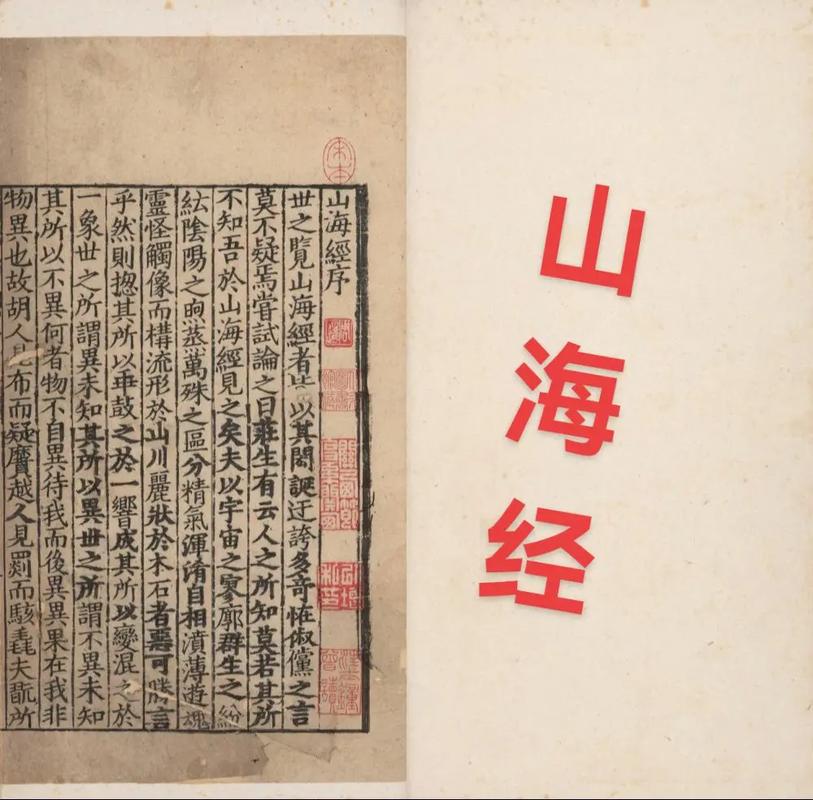 山海經序
世之覽山海經者皆以其閎誕迂誇多奇怪俶儻之言
莫不疑焉嘗試論之曰莊生有云人之所知莫若其所
不知吾於山海經見之矣夫以宇宙之寥廓群生之紛
紜陰陽之煦蒸萬殊之區分精氣渾淆自相濆薄遊魂
靈怪觸像而構流形於山川麗狀於木石者惡可勝言
乎然則揔其所以乖鼓之於一響成其所以變混之於
一象世之所謂異未知其所以異世之所謂不異未知
其所以不異何者物不自異待我而後異異果在我非
物異也故胡人見布而疑黂越人見罽而駭毳夫翫所
山
海
经